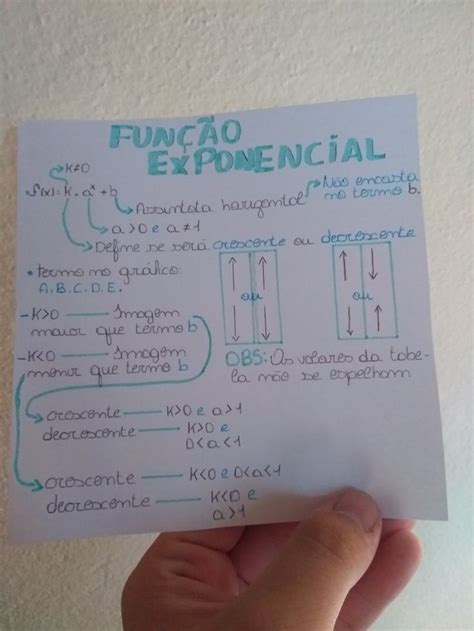 FUNÇÃO
EXPONENCIAL
K≠0
f(x)=k.aˣ+b
Assíntota horizontal
Não encosta
no termo b.
a>0 e a≠1
Define se será crescente ou decrescente
• termo no gráfico:
A.B.C.D.E.
ou
ou
-K>0 — Imagem
maior que termo b
-K<0 — Imagem
menor que termo b
OBS: Os valores da tabe-
la não se espelham
crescente — K>0 e a>1
decrescente — K>0 e
0<a<1
crescente — K<0 e 0<a<1
decrescente — K<0 e
a>1